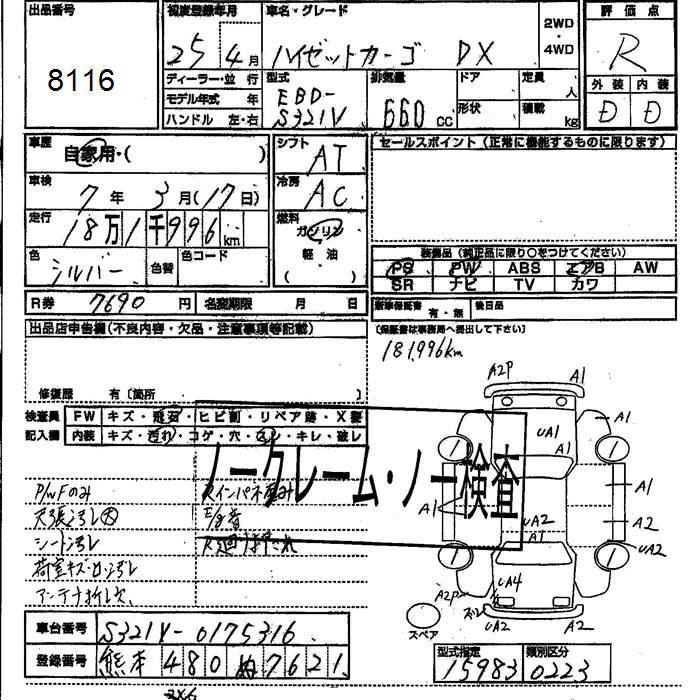 出品番号
8116
初度登録年月
25年4月
車名・グレード
ハイゼットカーゴ DX
2WD・4WD
評価点
R
外装 内装
D D
ディーラー・並行
モデル年式 年
ハンドル 左・右
型式
EBD-
S321V
排気量
660cc
ドア
形状
定員 人
積載 kg
車歴
自家用・( )
車検
7年3月(17日)
走行
18万1千996km
色
シルバー
色替
色コード
シフト
AT
冷房
AC
燃料
ガソリン
軽油
( )
セールスポイント(正常に機能するものに限ります)
装備品(純正品に限り○をつけてください)
PS PW ABS エアB AW
SR ナビ TV カワ
R券 7690円 名変期限 月 日
新車保証書 有・無 後日品
(保証書は事務局へ提出して下さい)
出品店申告欄(不良内容・欠品・注意事項等記載)
修復歴 有〔箇所 〕
181,996km
検査員 FW キズ・飛石・ヒビ割・リペア跡・X要
記入欄 内装 キズ・汚れ・コゲ・穴・スレ・キレ・破レ
ノークレーム・ノー検査
P/WFのみ
天張汚レ大
シート汚レ
荷室キズ・凹・汚レ
アンテナ折レ欠
Rインパネ歪み
E/g音
A2P A1
A1
UA1
A1
A1
A1
A2
UA2
A1
UA2
UA4
A2P
ズレ
UA2
A2
スペア
車台番号 S321V-0175316
登録番号 熊本 480 ぬ 7621
型式指定 類別区分
15983 0223